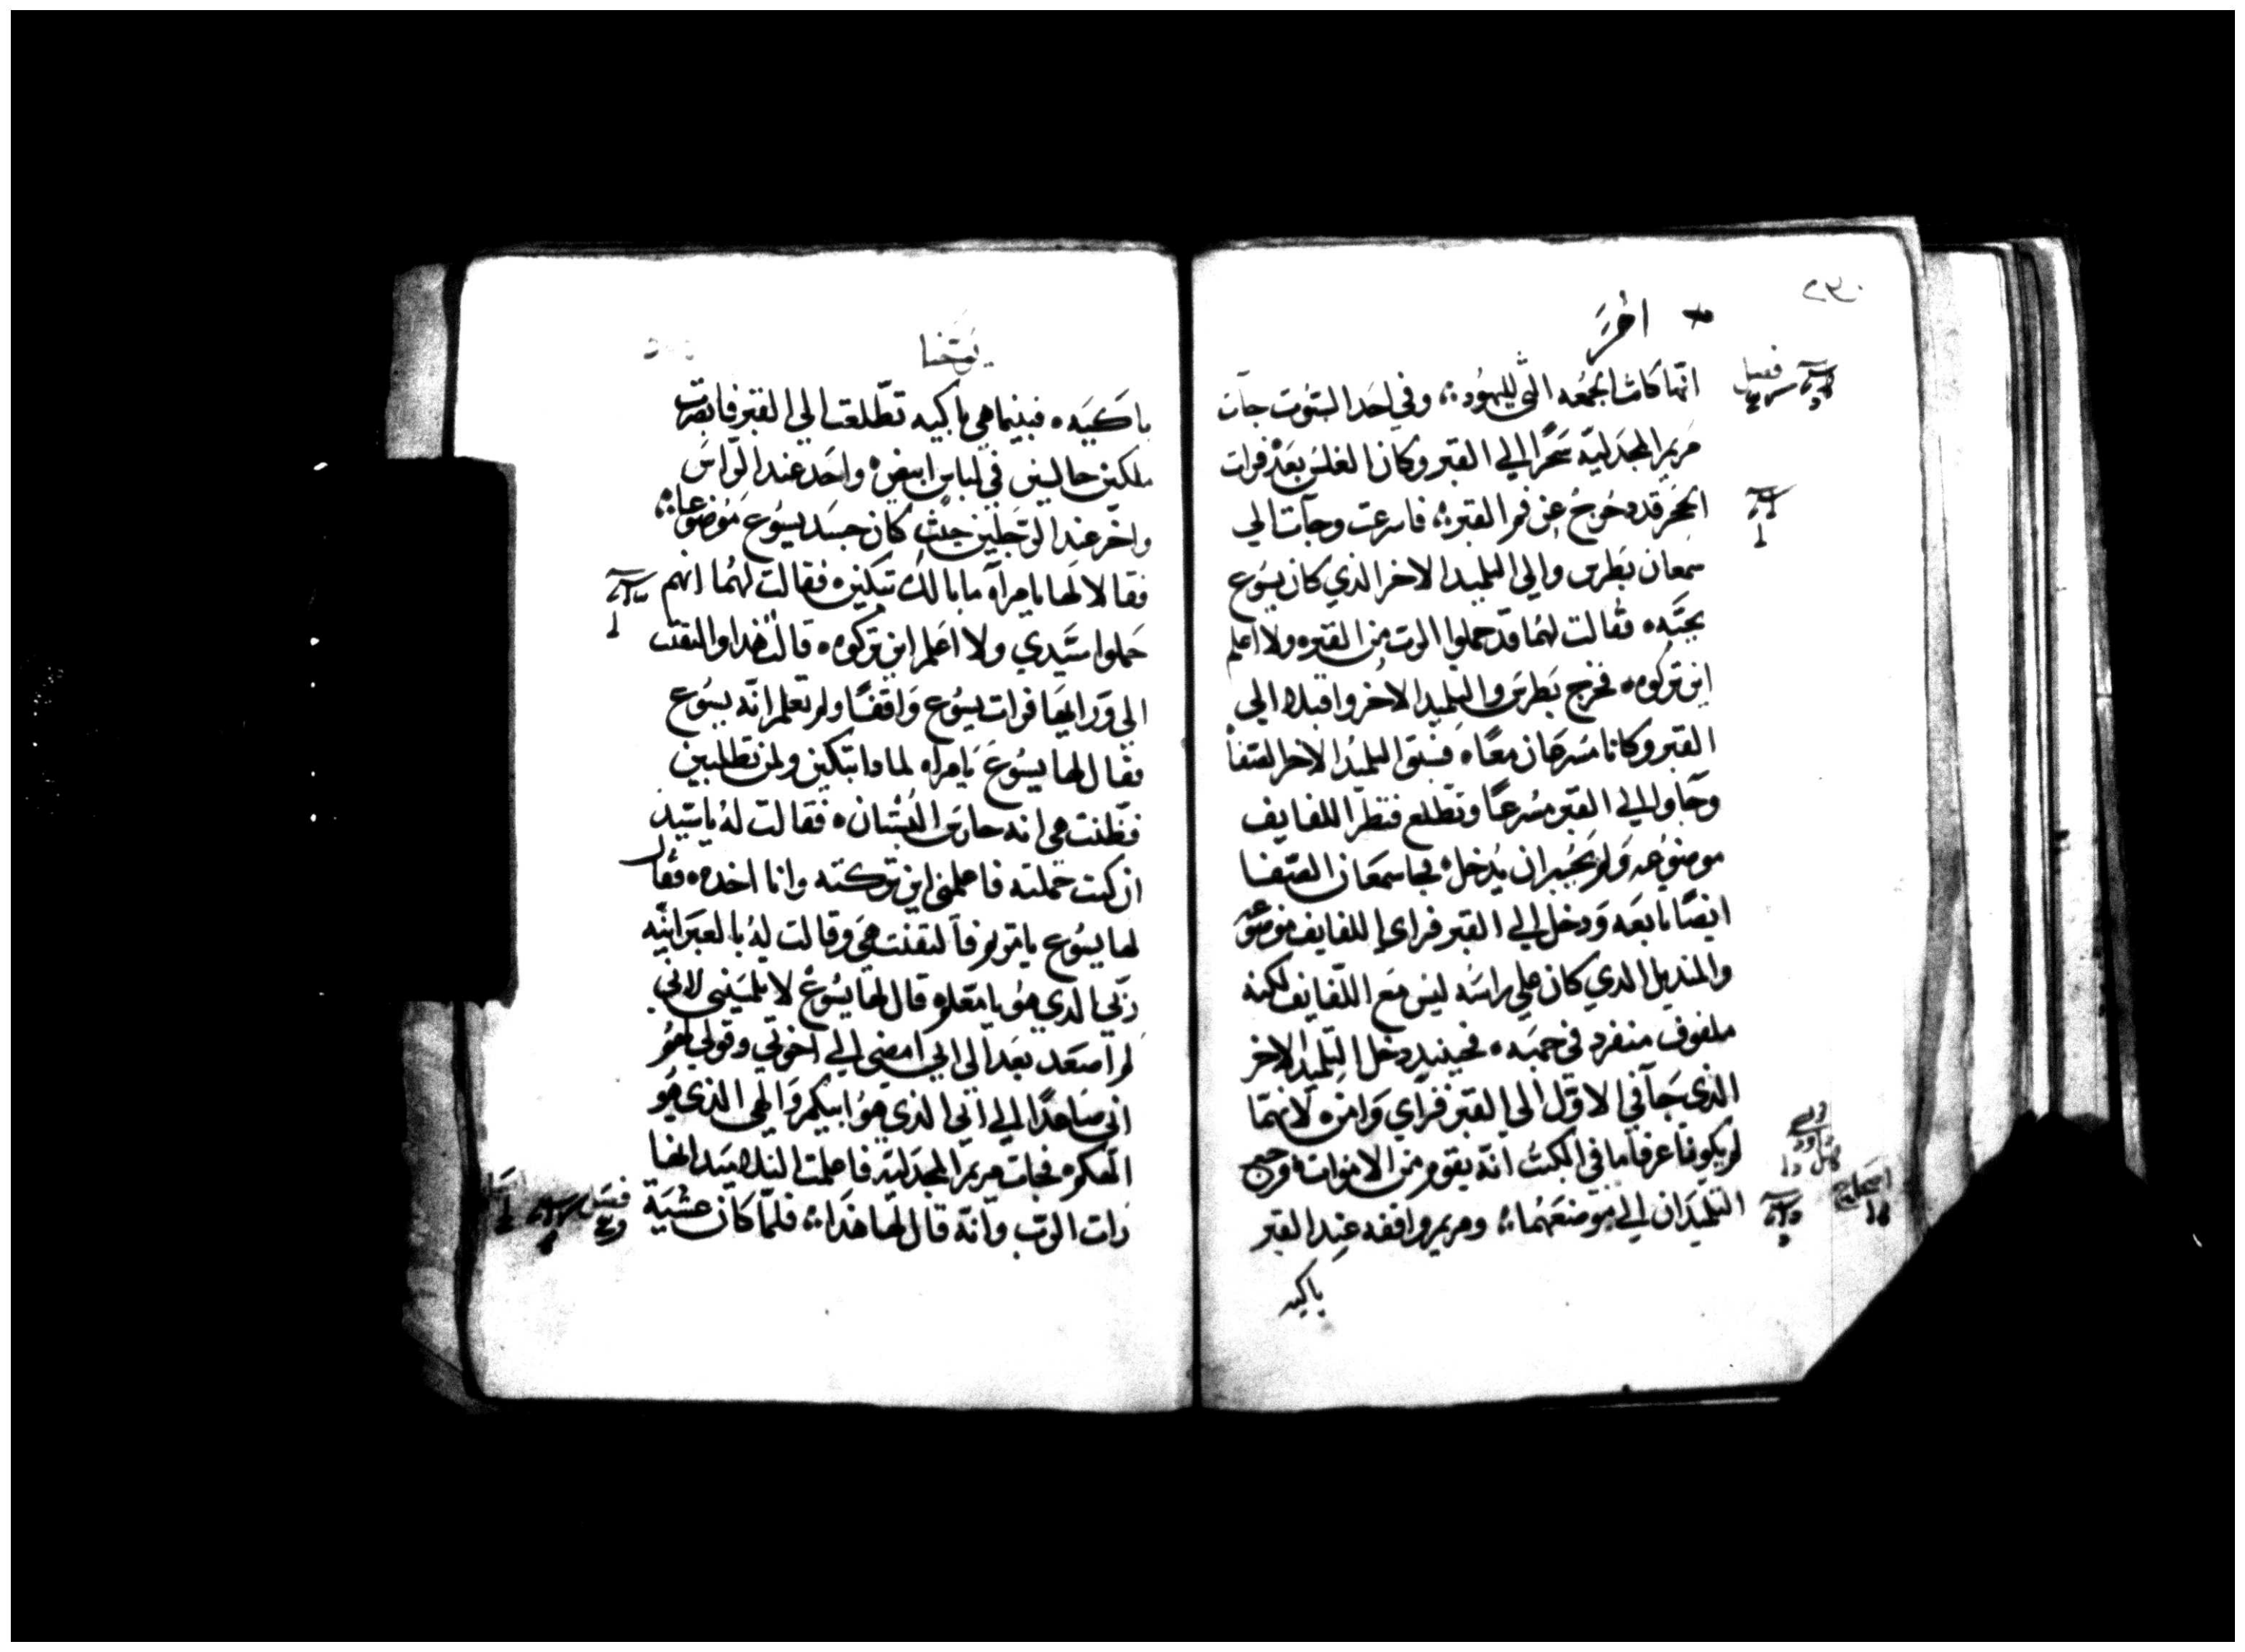 اخر
انها كانت الجمعه التي لليهود ؞ وفي احد السبوت جآت
فصل
مريم المجدليه سحرًا الي القبر وكان الغلس بعد فرات
الحجر قد دحرج عن فم القبر ؞ فاسرعت وجآت الي
سمعان بطرس والي التلميد الاخر الدي كان يسوع
يحبّه ٥ فقالت لهما قد حملوا الرب من القبر ٥ ولا اعلم
اين تركوه ٥ فخرج بطرس والتلميد الاخر واقبلا الي
القبر وكانا مسرعان معًا ٥ فسبق التلميد الاخر الصفا
وجآ اولا الي القبر مسرعًا وتطلع فنظر اللفايف
موضوعه ولم يجسر ان يدخل ٥ فجا سمعان الصفا
ايضًا تابعه ودخل الي القبر فراي اللفايف موضوعه
والمنديل الدي كان علي راسه ليس مع اللفايف لكنه
ملفوف منفرد في جهه ٥ فحينيد دخل التلميد الاخر
الذي جآ في الاول الي القبر فرآي وامن ٥ لانهما
لم يكونا عرفا ما في الكتب انه يقوم من الاموات ٥ ورجع
التلميدان الي موضعهما ؞ ومريم واقفه عند القبر
باكيه
يوحنا
باكيه ٥ فبينما هي باكيه تطلعت الي القبر فابصرت
ملكين جالسين في لباس ابيض ٥ واحد عند الراس
واخر عند الرجلين حيث كان جسد يسوع موضوعا ؞
فقالا لها يامرآه ما بالك تبكين ٥ فقالت لهما انهم
حملوا سيدي ولا اعلم اين تركوه ٥ قالت هدا والتفتت
الي ورايها فرات يسوع واقفًا ولم تعلم انه يسوع
فقال لها يسوع يامراه لمادا تبكين ولمن تطلبين
فظنت هي انه حارس البستان ٥ فقالت له ياسيد
ان كنت حملته فاعلمني اين تركته وانا اخده ٥ فقال
لها يسوع يا مريم فالتفتت هي وقالت له بالعبرانيه
ربّي الدي هو يا معلم قال لها يسوع لا تلمسيني لاني
لم اصعد بعد الي ابي امضي الي اخوتي وقولي لهم
اني صاعدًا الي ابي الذي هو ابيكم والهي الذي هو
الهكم ٥ فجات مريم المجدلية فاعلمت التلاميد انها
رات الرب وانه قال لها هذا ؞ فلما كان عشية
فصل